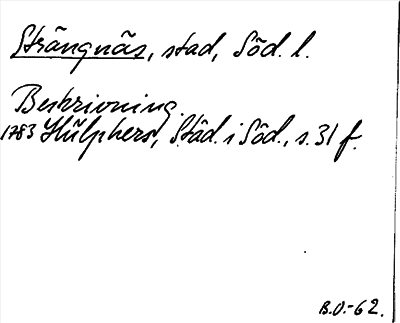 Strängnäs, stad, Söd. l.
Beskrivning.
1783 Hülphers, Städ. i Söd., s. 31 f.
B.O.-62.